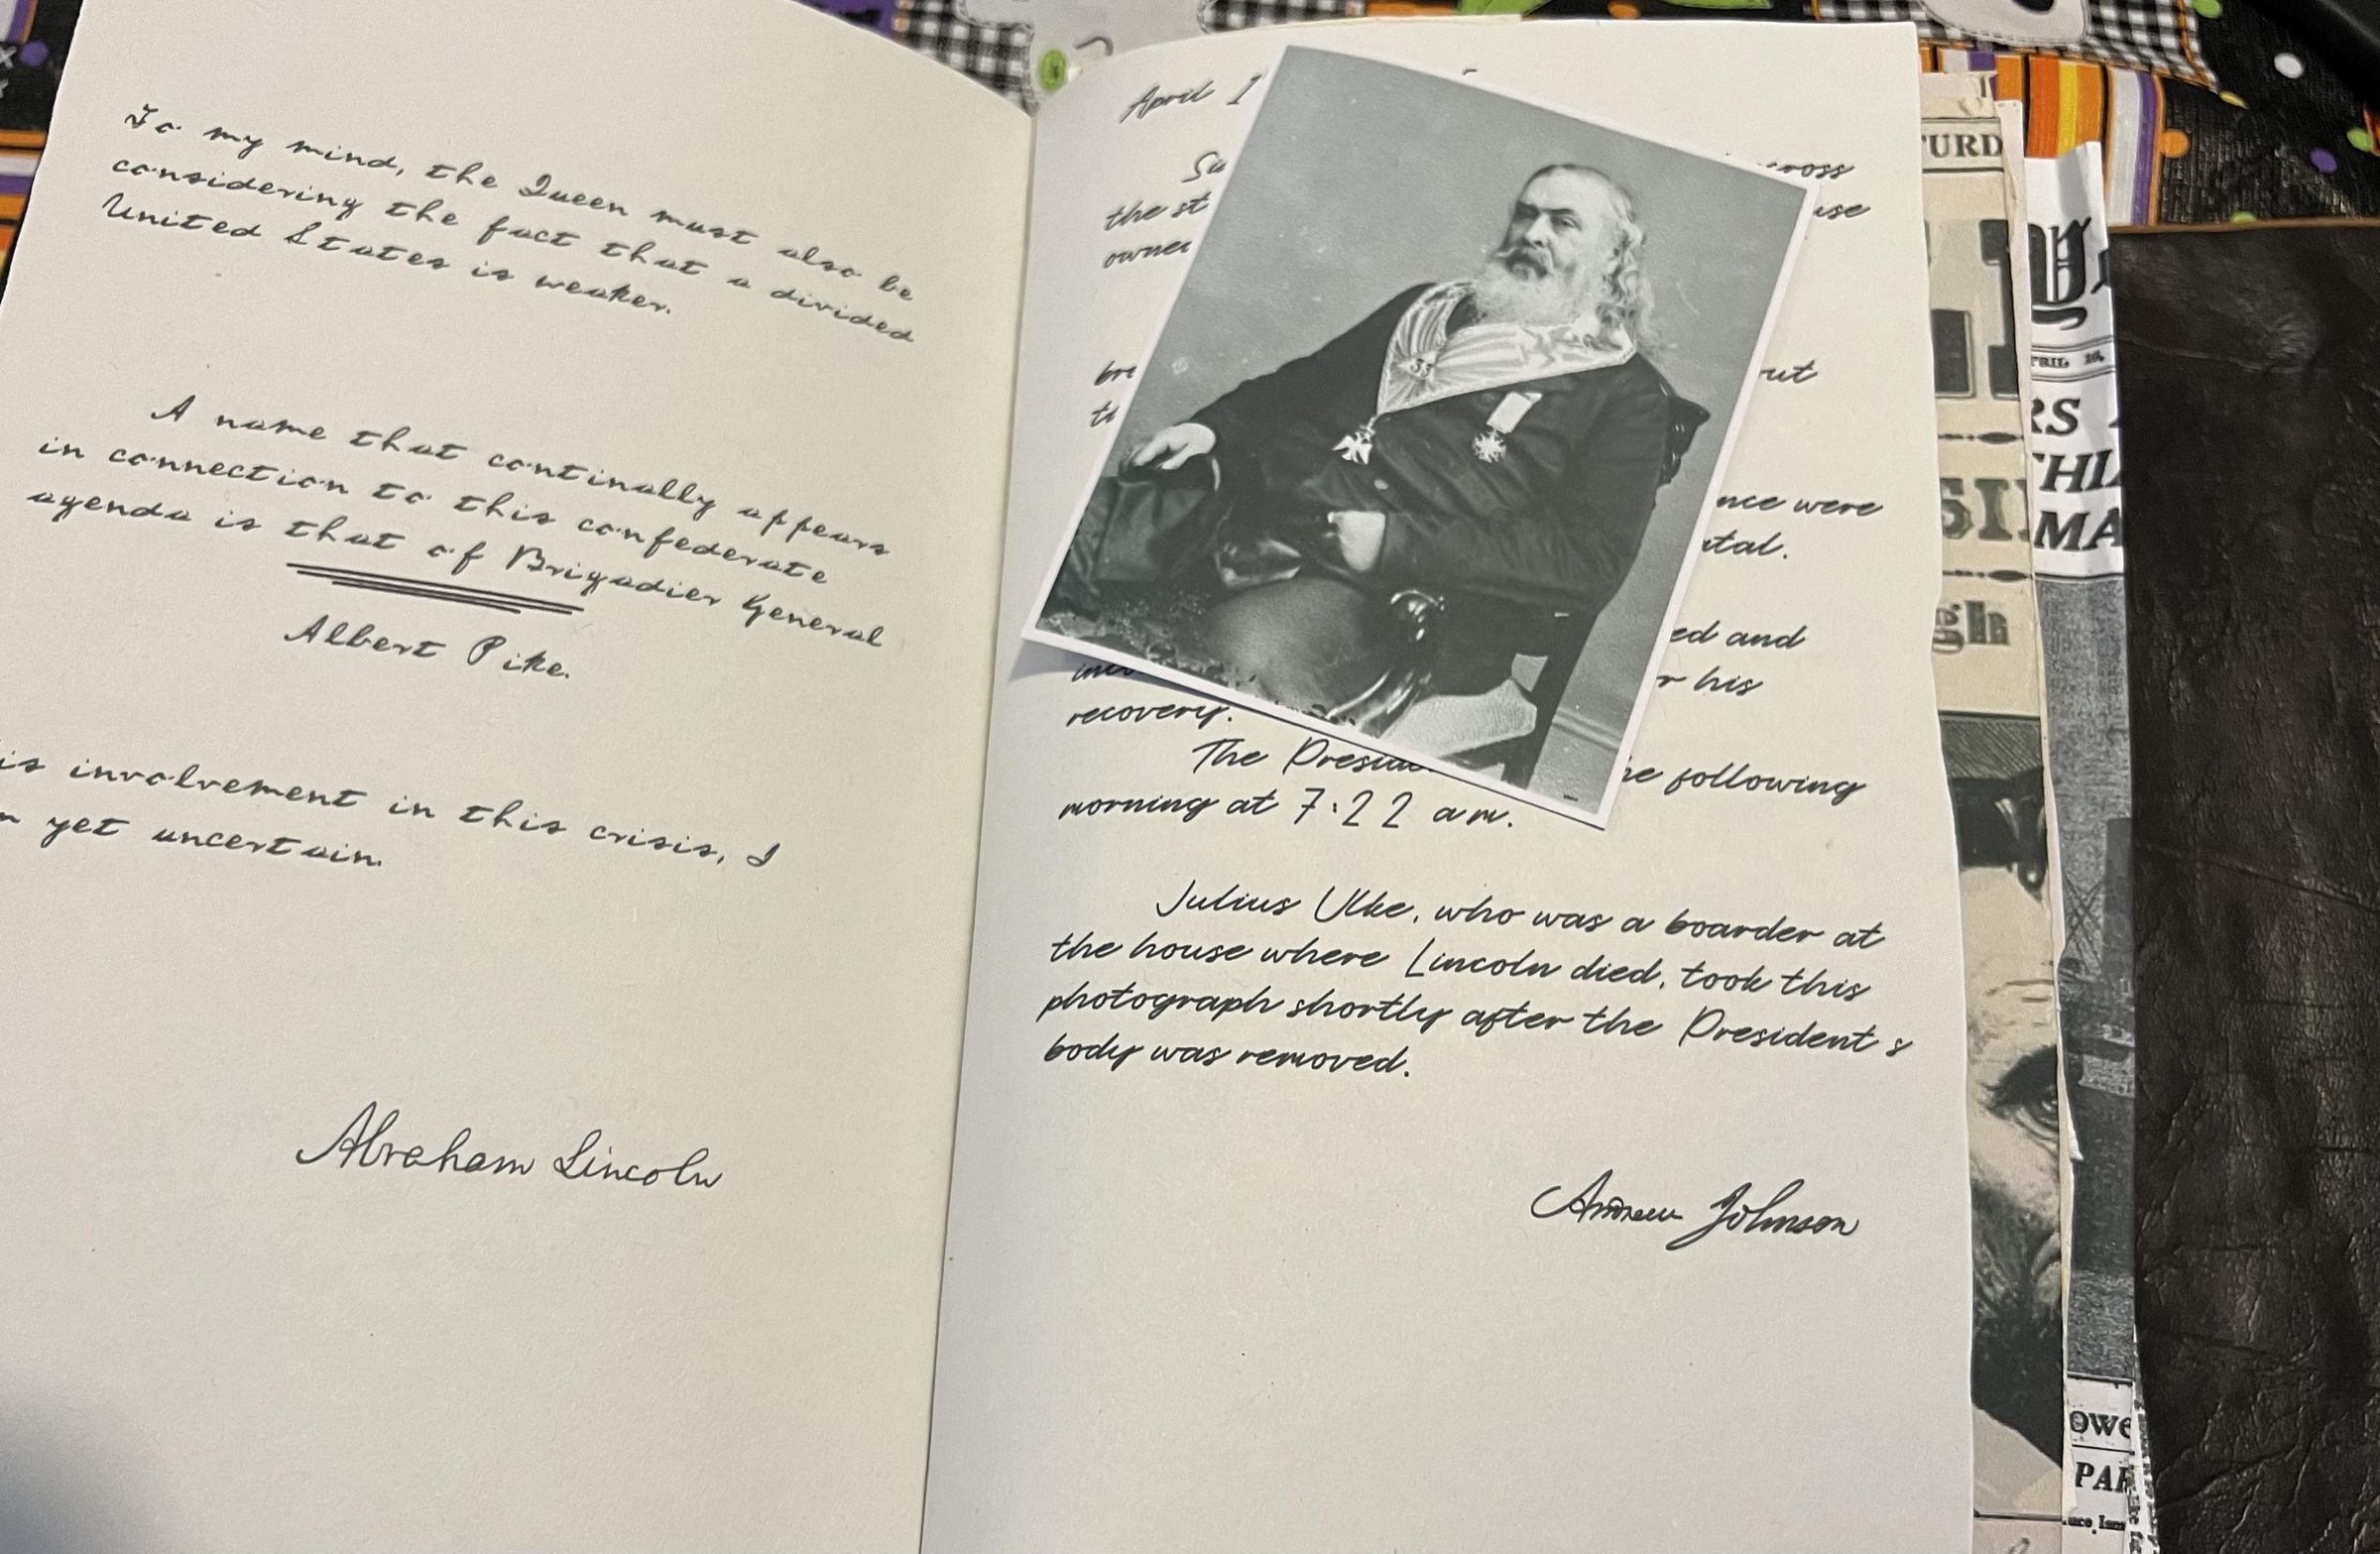 To my mind, the Queen must also be
considering the fact that a divided
United States is weaker.
A name that continally appears
in connection to this confederate
agenda is that of Brigadier General
Albert Pike.
is involvement in this crisis, I
yet uncertain.
Abraham Lincoln
April 1
Su
the st
owner
bre
th
ross
use
out
nce were
tal.
ed and
r his
recovery.
The Presid he following
morning at 7:22 am.
Julius Ulke, who was a boarder at
the house where Lincoln died, took this
photograph shortly after the President s
body was removed.
Andrew Johnson
33
TURD
SI
gh
PRIL 16,
RS
THI
MA
OWE
PAR